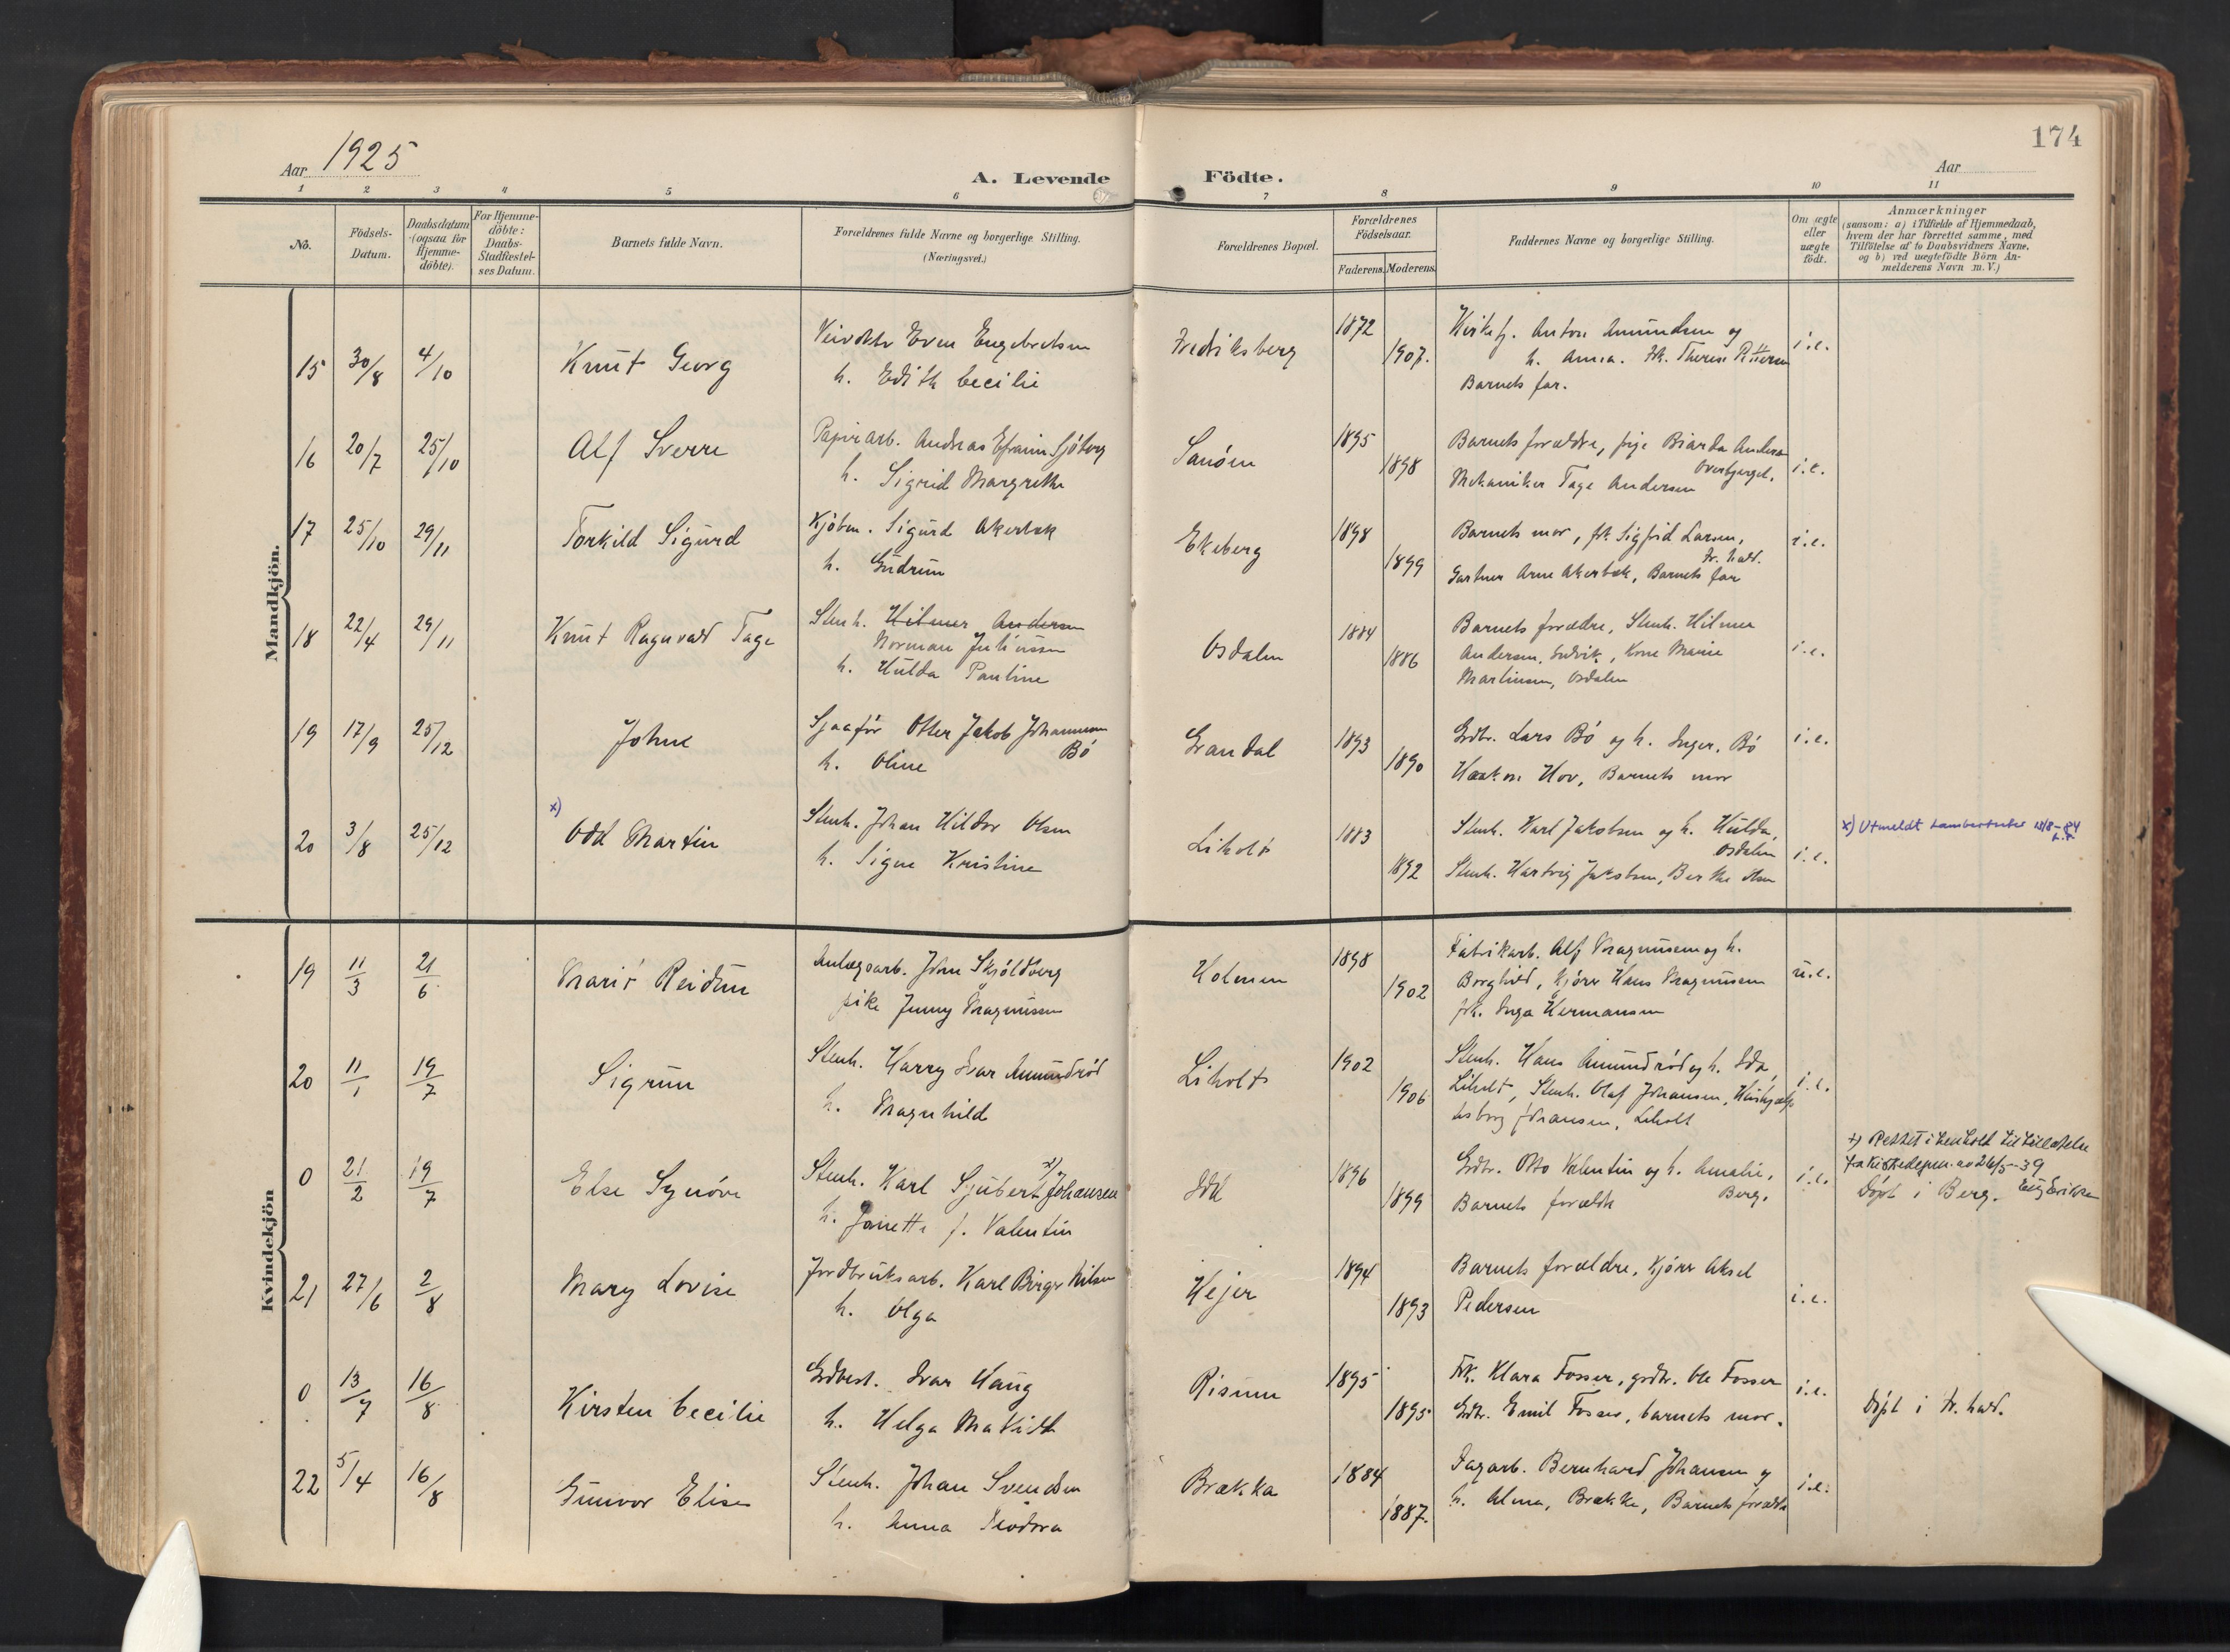 174
Aar 1925
A. Levende Födte.
Aar
1 2 3 4 5 6 7 8 9 10 11
No.
Födsels-
Datum.
Daabsdatum
(ogsaa for
Hjemme-
döbte).
For Hjemme-
döbte:
Daabs-
Stadfæstel-
ses Datum.
Barnets fulde Navn.
Forældrenes fulde Navne og borgerlige Stilling.
(Næringsvei.)
Forældrenes Bopæl.
Forældrenes
Födselsaar.
Faderens. Moderens.
Faddernes Navne og borgerlige Stilling.
Om ægte
eller
uægte
födt.
Anmærkninger
(saasom: a) i Tilfælde af Hjemmedaab,
hvem der har forrettet samme, med
Tilföielse af to Daabsvidners Navne,
og b) ved uægtefödte Börn An-
melderens Navn m.V.)
Mandkjön.
15 30/8 4/10 Knut Georg
Even Engebretsen
h. Edith Cecilie
Fredriksberg 1872 1907.
Anton Amundsen og
h. Anna. Frk. Therese
Barnets far.
i.e.
16 20/7 25/10 Alf Sverre
Papirarb. Andreas Efraim Sjöberg
h. Sigrid Margrethe
1895 1898
Barnets forældre, pige
Mekaniker Tage Andersen
i.e.
17 25/10 29/11 Torkild Sigurd
Kjöbm. Sigurd Akerbæk
h. Gudrun
Ekeberg 1898 1899
Barnets mor, frk. Sigfrid Larsen,
Fr. hald.
Gartner Arne Akerbæk, Barnets far
i.e.
18 22/4 29/11 Knut Ragnvald Tage
Stenh. Hilmer Andersen
Norman Juliussen
h. Hulda Pauline
Osdalen 1884 1886
Barnets forældre, Stenh. Hilmer
Andersen, Kone Marie
Martinsen, Osdalen
i.e.
19 17/9 25/12 Johne
Otter Jakob Johannessen
Bö
h. Oline
Grandal 1893 1890
Grdbr. Lars Bö og h. Inger, Bö
Haakon Hov, Barnets mor
i.e.
20 3/8 25/12 x) Odd Martin
Stenh. Johan Hildor Olsen
h. Signe Kristine
Liholt 1883 1892
Stenh. Karl Jakobsen og h. Hulda,
Osdalen
Stenh. Hartvig Jakobsen, Berthe Olsen
i.e.
x) Utmeldt
Kvindekjön
19 11/3 21/6 Marit Reidun
Anlægsarb. John Skjöldberg
pike Jenny Magnussen
Holmen 1898 1902
Fabrikarb. Alf Magnussen og h.
Borghild, kjörer Hans Magnussen
frk. Inga Hermansen
u.e.
20 11/1 19/7 Sigrun
Stenh. Harry Ivar Amundröd
h. Magnhild
Liholt 1902 1906
Stenh. Hans Amundröd og h. Ida,
Liholt, Stenh. Olaf Johansen,
Johansen, Liholt
i.e.
0 21/2 19/7 Else Synöve
Stenh. Karl Sjubert x) Johansen
h. Janette f. Valentin
Idd 1896 1899
Grdbr. Otto Valentin og h. Amalie,
Berg.
Barnets forældre
i.e.
x) Rettet i henhold til tillatelse
fra Kirkedepm. av 26/5-39
Döpt i Berg.
21 27/6 2/8 Mary Lovise
Jordbruksarb. Karl Birger Nilsen
h. Olga
Hejer 1894 1893
Barnets forældre, Kjörer Aksel
Pedersen
i.e.
0 13/7 16/8 Kirsten Cecilie
Ivar Haug
h. Helga
Risum 1895 1895
Frk. Klara Fosser, grdbr. Ole Fosser
Grdbr. Emil Fosser, barnets mor.
i.e.
Döpt i Fr. hald.
22 5/4 16/8 Gunvor Elise
Stenh. Johan Svendsen
h. Anna Teodora
Brækka 1884 1887.
Fagarb. Bernhard Johansen og
h. Alma, Brække, Barnets forældre
i.e.